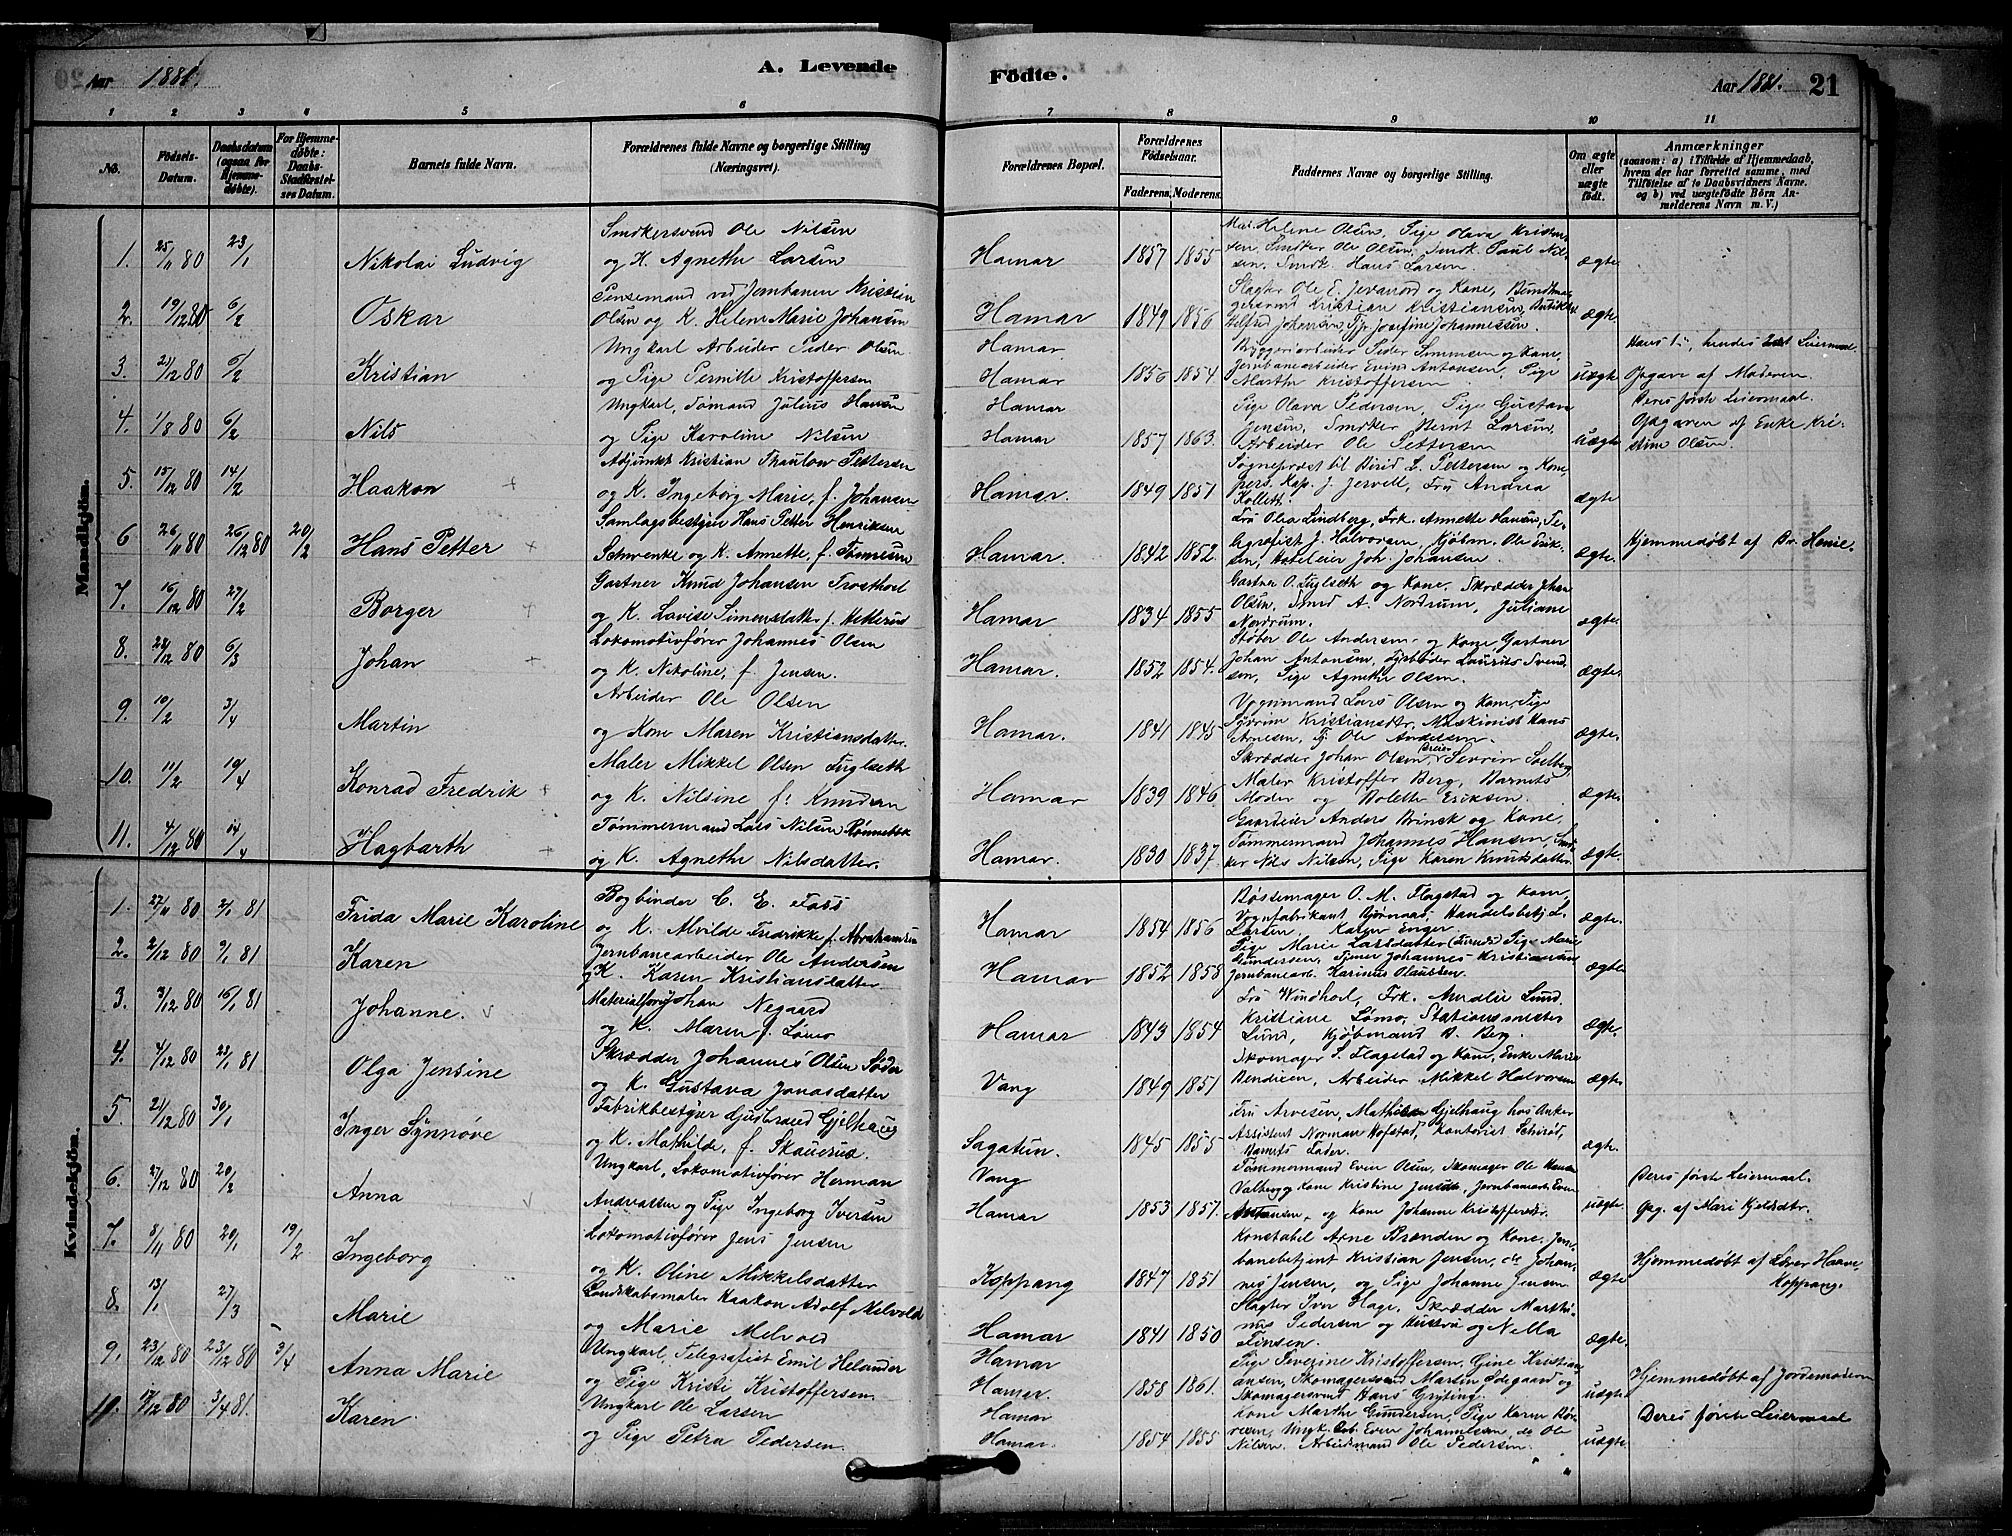 Aar 1881. A. Levende Fødte. Aar 1881. 21
1 2 3 4 5 6 7 8 9 10 11
No.
Födsels-Datum.
Daabsdatum (ogsaa for Hjemmedöbte).
For Hjemmedöbte: Daabs-Stadfæstelses Datum.
Barnets fulde Navn.
Forældrenes fulde Navne og borgerlige Stilling (Næringsvei).
Forældrenes Bopæl.
Forældrenes Födselsaar.
Faderens. Moderens.
Faddernes Navne og borgerlige Stilling.
Om ægte eller uægte födt.
Anmærkninger (saasom: a) i Tilfælde af Hjemmedaab, hvem der har forrettet samme, med Tilföielse af to Daabsvidners Navne. og b) ved uægtefödte Börn Anmelderens Navn m. V.)
Mandkjön.
1. 25/11 80 23/1 Nikolai Ludvig
Snedkersvend Ole Nilsen
og K. Agnethe Larsen
Hamar 1857 1855
Helene Olsen, Pige Olava Kristensen, Snedker Ole Olsen, Snedk. Paul Nilsen, Snedk. Hans Larsen.
ægte
2. 19/12 80 6/2 Oskar
Pensemand ved Jernbanen Kristian
Olsen og K. Helene Marie Johansen
Hamar 1849 1856
Slagter Ole E. og Kone, Kristian Kristiansen, Johansen, Josefine Johannessen.
ægte.
3. 21/12 80 6/2 Kristian
Ungkarl Arbeider Peder Olsen
og Pige Pernille Kristoffersen
Hamar.
Hamar 1856 1854.
Bryggeriarbeider Peder Simensen og Kone, Jernbanearbeider Evind Antonsen, Pige Marthe Kristoffersen
uægte
Hans 1ste, hendes 2det Leiermaal.
Opgave af Moderen.
4. 1/8 80 6/2 Nils
Ungkarl, Sømand Julius Hansen
og Pige Karoline Nilsen
Hamar
Hamar 1857 1863.
Pige Olava Pedersen, Pige Gustava Jensen, Snedker Bernt Larsen, Arbeider Ole Pettersen
uægte
Deres første Leiermaal.
Opgaven af Enke Kristine Olsen
5. 15/12 80 14/2 Haakon +
Adjunkt Kristian Thaulow Pettersen
og K. Ingeborg Marie, f. Johansen
Hamar. 1849 1851
Sogneprest til Birid L. Pettersen og Kone, pers. Kap. J. Jervell, Fru Andrea Kollett.
ægte
6 26/11 80 26/12 80 20/2 Hans Petter +
Samlagsbestyrer Hans Petter Henriksen
Schwenke og K. Annette, f. Tømmesen
Hamar. 1842 1852.
Fru Olea Lindberg, Frk. Annette Hansen, Telegrafist J. Halvorsen, Kjøbm. Ole Eriksen, Hoteleier Joh. Johansen
ægte.
Hjemmedøbt af Dr.
7. 16/12 80 27/2 Borger +
Gartner Knud Johansen Frosthoel
og K. Lovise Simensdatter f.
Hamar 1834 1855
Gartner O. Fuglseth og Kone, Skrædder Johan Olsen, Smed A. Nordrum, Juliane Nordrum.
ægte.
8. 24/12 80 6/3 Johan +
Lokomotivfører Johannes Olsen
og K. Nikoline, f. Jensen.
Hamar. 1852 1854.
Støber Ole Andersen og Kone, Gartner Johan Antonsen, Fyrbøder Laurits Svendsen, Pige Agnethe Olsen.
ægte.
9. 10/2 3/4 Martin
Arbeider Ole Olsen
og Kone Maren Kristiansdatter.
Hamar. 1841 1845
Lars Olsen og Kone, Pige Kristiansdtr., Maskinist Hans Arnesen, Ole Andersen.
ægte.
10. 11/2 19/4 Konrad Fredrik +
Maler Mikkel Olsen Fuglseth
og K. Nilsine f. Knudsen
Hamar 1839 1846
Skrædder Johan Olsen, Severin Solberg, Maler Kristoffer Berg, Barnets Moder og Bolette Eriksen.
ægte.
11. 4/12 80 14/4 Hagbarth +
Tømmermand Lars Nilsen
og K. Agnethe Nilsdatter.
Hamar. 1830 1837.
Gaardeier Anders Brinck og Kone, Tømmermand Johannes Hansen, Snedker Nils Nilsen, Pige Karen Knudsdatter.
ægte.
Kvindekjön.
1. 27/11 80 2/1 81 Frida Marie Karoline
Bogbinder C. E. Foss
og K. Alvilde Fredrikke f. Abrahamsen
Hamar 1854 1856
Bøssemager O. M. Flagstad og Kone, Vognfabrikant Bjørnaas, Handelsbetj. L. Larsen, Karen Enger.
ægte.
2. 2/12 80 9/1 81 Karen
Jernbanearbeider Ole Andersen
og K. Karen Kristiansdatter
Hamar 1852 1858
Pige Marie Larsdatter, Pige Marie Gundersen, Johannes Kristiansen, Jernbanearb. Karinus Olaussen.
ægte.
3. 3/12 80 16/1 81 Johanne. v
Materialforv. Johan Negaard
og K. Maren f. Lømo
Hamar 1843 1854
Fru Windhoel, Frk. Amalie Lund, Kristiane Lømo, Stationsmester Lund, Kjøbmand B. Berg.
ægte.
4. 4/12 80 23/1 81 Olga Jensine
Skrædder Johannes Olsen
og K. Gustava Jonasdatter
Vang 1849 1851
Skomager S. Flagstad og Kone, Enke Marie Bendixen, Arbeider Mikkel Halvorsen
ægte.
5. 21/12 80 30/1 Inger Synnøve
Fabrikbestyrer Gudbrand Gjelhaug
og K. Mathilde, f. Skauerud
Sagatun. 1845 1855
Fru Arvesen, Mathilde Gjelhaug hos Anker, Assistent Norman Hofstad, Kontorist Schirød, Barnets Fader.
ægte.
6. 27/12 80 20/2 Anna v
Ungkarl, Lokomotivfører Herman
Andreassen og Pige Ingeborg Iversen
Vang
Hamar 1853 1857.
Tømmermand Even Olsen, Skomager Ole Hansen Valberg og Kone Kristine Jensdtr., Jernbanearb. Even Antonsen, og Kone Johanne Kristoffersdtr.
uægte.
Deres første Leiermaal.
Opg. af Mari Kjeldsdtr.
7. 9/11 80 20/1 19/2 Ingeborg
Lokomotivfører Jens Jensen
og K. Oline Mikkelsdatter
Koppang 1847 1851
Konstabel Arne Brænden og Kone, Jernbanebetjent Kristian Jensen, do Johannes Jensen, og Pige Johanne Jensen
ægte
Hjemmedøbt af Lærer Haave Koppang.
8. 13/1 27/3 Marie
Landskabsmaler Haakon Adolf Melvold
og Marie Melvold
Hamar 1841 1850
Slagter Iver Hage, Skrædder Marthinus Pedersen og Hustru og Nella Finsen.
ægte.
9. 23/12 80 23/12 80 3/4 Anna Marie
Ungkarl, Telegrafist Emil Helander
og Pige Kristi Kristoffersen
Hamar
Hamar. 1858 1861.
Pige Severine Kristoffersen, Gine Kristiansen, Skomagersvend Martin Ødegaard og Skomagersvend Hans Gryting.
uægte.
Hjemmedøbt af Jordemoderen
10. 17/12 80 3/4 81. Karen
Ungkarl Ole Larsen
og Pige Petra Pedersen.
Hamar
Hamar. 1854 1855
Kone Marthe Gundersen, Pige Karen, Ungk. Even Johannessen, do Ole Nilsen. Arbeidsmand Ole Pedersen.
uægte.
Deres første Leiermaal